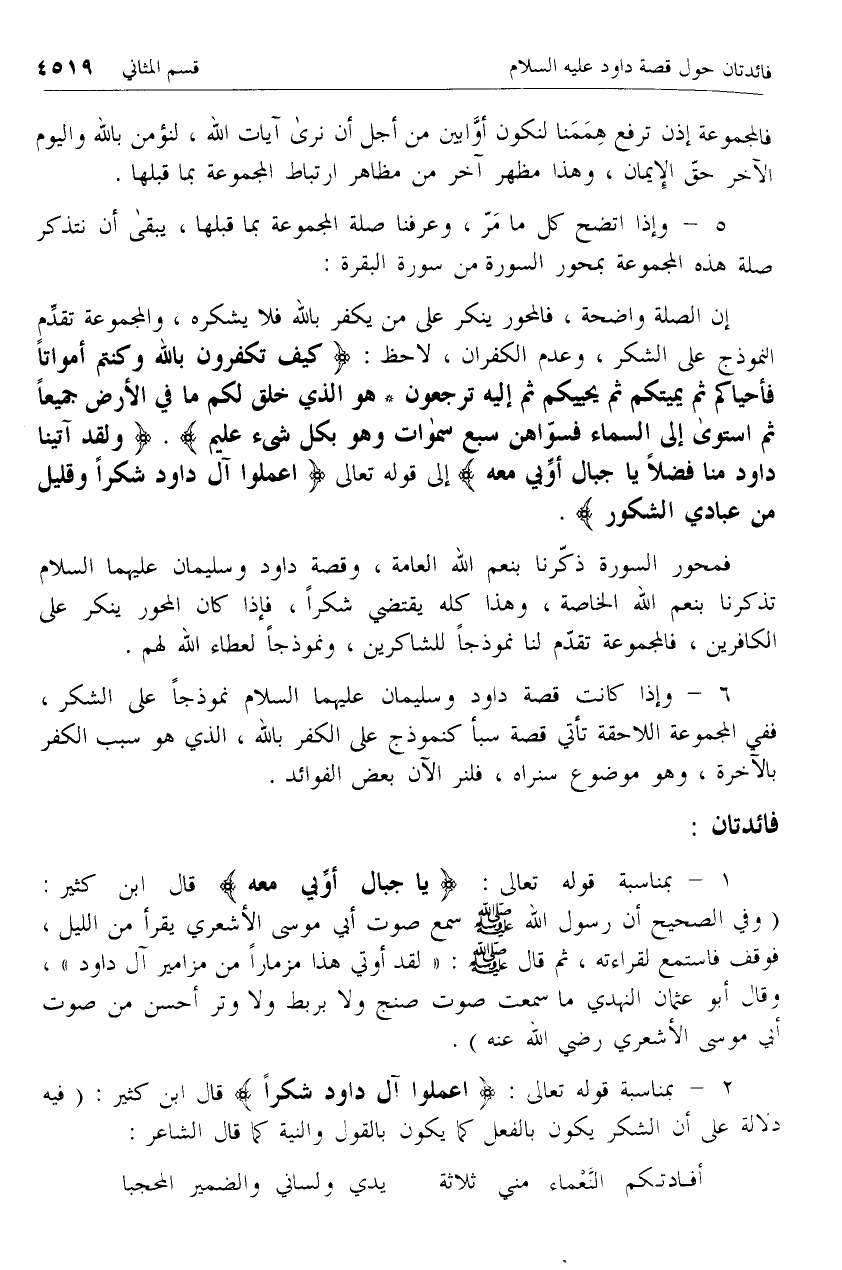 فائدتان حول قصة داود عليه السلام قسم المثاني ٤٥١٩
فالمجموعة إذن ترفع هِمَمَنا لنكون أوَّابين من أجل أن نرىٰ آيات الله ، لنؤمن بالله واليوم
الآخر حقّ الإيمان ، وهذا مظهر آخر من مظاهر ارتباط المجموعة بما قبلها .
٥ – وإذا اتضح كل ما مَرّ ، وعرفنا صلة المجموعة بما قبلها ، يبقىٰ أن نتذكر
صلة هذه المجموعة بمحور السورة من سورة البقرة :
إن الصلة واضحة ، فالمحور ينكر على من يكفر بالله فلا يشكره ، والمجموعة تقدِّم
النموذج على الشكر ، وعدم الكفران ، لاحظ : ﴿ كيف تكفرون بالله وكنتم أمواتاً
فأحياكم ثم يميتكم ثم يحييكم ثم إليه ترجعون * هو الذي خلق لكم ما في الأرض جميعاً
ثم استوىٰ إلى السماء فسوّاهن سبع سمٰوات وهو بكل شيء عليم ﴾ . ﴿ ولقد آتينا
داود منا فضلاً يا جبال أوِّبي معه ﴾ إلى قوله تعالى ﴿ اعملوا آل داود شكراً وقليل
من عبادي الشكور ﴾ .
فمحور السورة ذكّرنا بنعم الله العامة ، وقصة داود وسليمان عليهما السلام
تذكرنا بنعم الله الخاصة ، وهذا كله يقتضي شكراً ، فإذا كان المحور ينكر على
الكافرين ، فالمجموعة تقدّم لنا نموذجاً للشاكرين ، ونموذجاً لعطاء الله لهم .
٦ – وإذا كانت قصة داود وسليمان عليهما السلام نموذجاً على الشكر ،
ففي المجموعة اللاحقة تأتي قصة سبأ كنموذج على الكفر بالله ، الذي هو سبب الكفر
بالآخرة ، وهو موضوع سنراه ، فلنر الآن بعض الفوائد .
فائدتان :
١ – بمناسبة قوله تعالى : ﴿ يا جبال أوِّبي معه ﴾ قال ابن كثير :
( وفي الصحيح أن رسول الله ﷺ سمع صوت أبي موسى الأشعري يقرأ من الليل ،
فوقف فاستمع لقراءته ، ثم قال ﷺ : « لقد أوتي هذا مزماراً من مزامير آل داود » ،
وقال أبو عثمان النهدي ما سمعت صوت صنج ولا بربط ولا وتر أحسن من صوت
أبي موسى الأشعري رضي الله عنه ) .
٢ – بمناسبة قوله تعالى : ﴿ اعملوا آل داود شكراً ﴾ قال ابن كثير : ( فيه
دلالة على أن الشكر يكون بالفعل كما يكون بالقول والنية كما قال الشاعر :
أفادتكم النَّعْماء مني ثلاثة يدي ولساني والضمير المحجبا